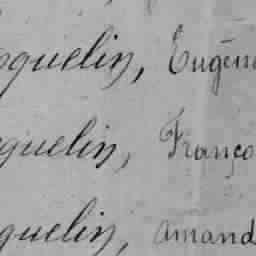 oquelin, Eugèn
quelin, Franço
quelin, Amand